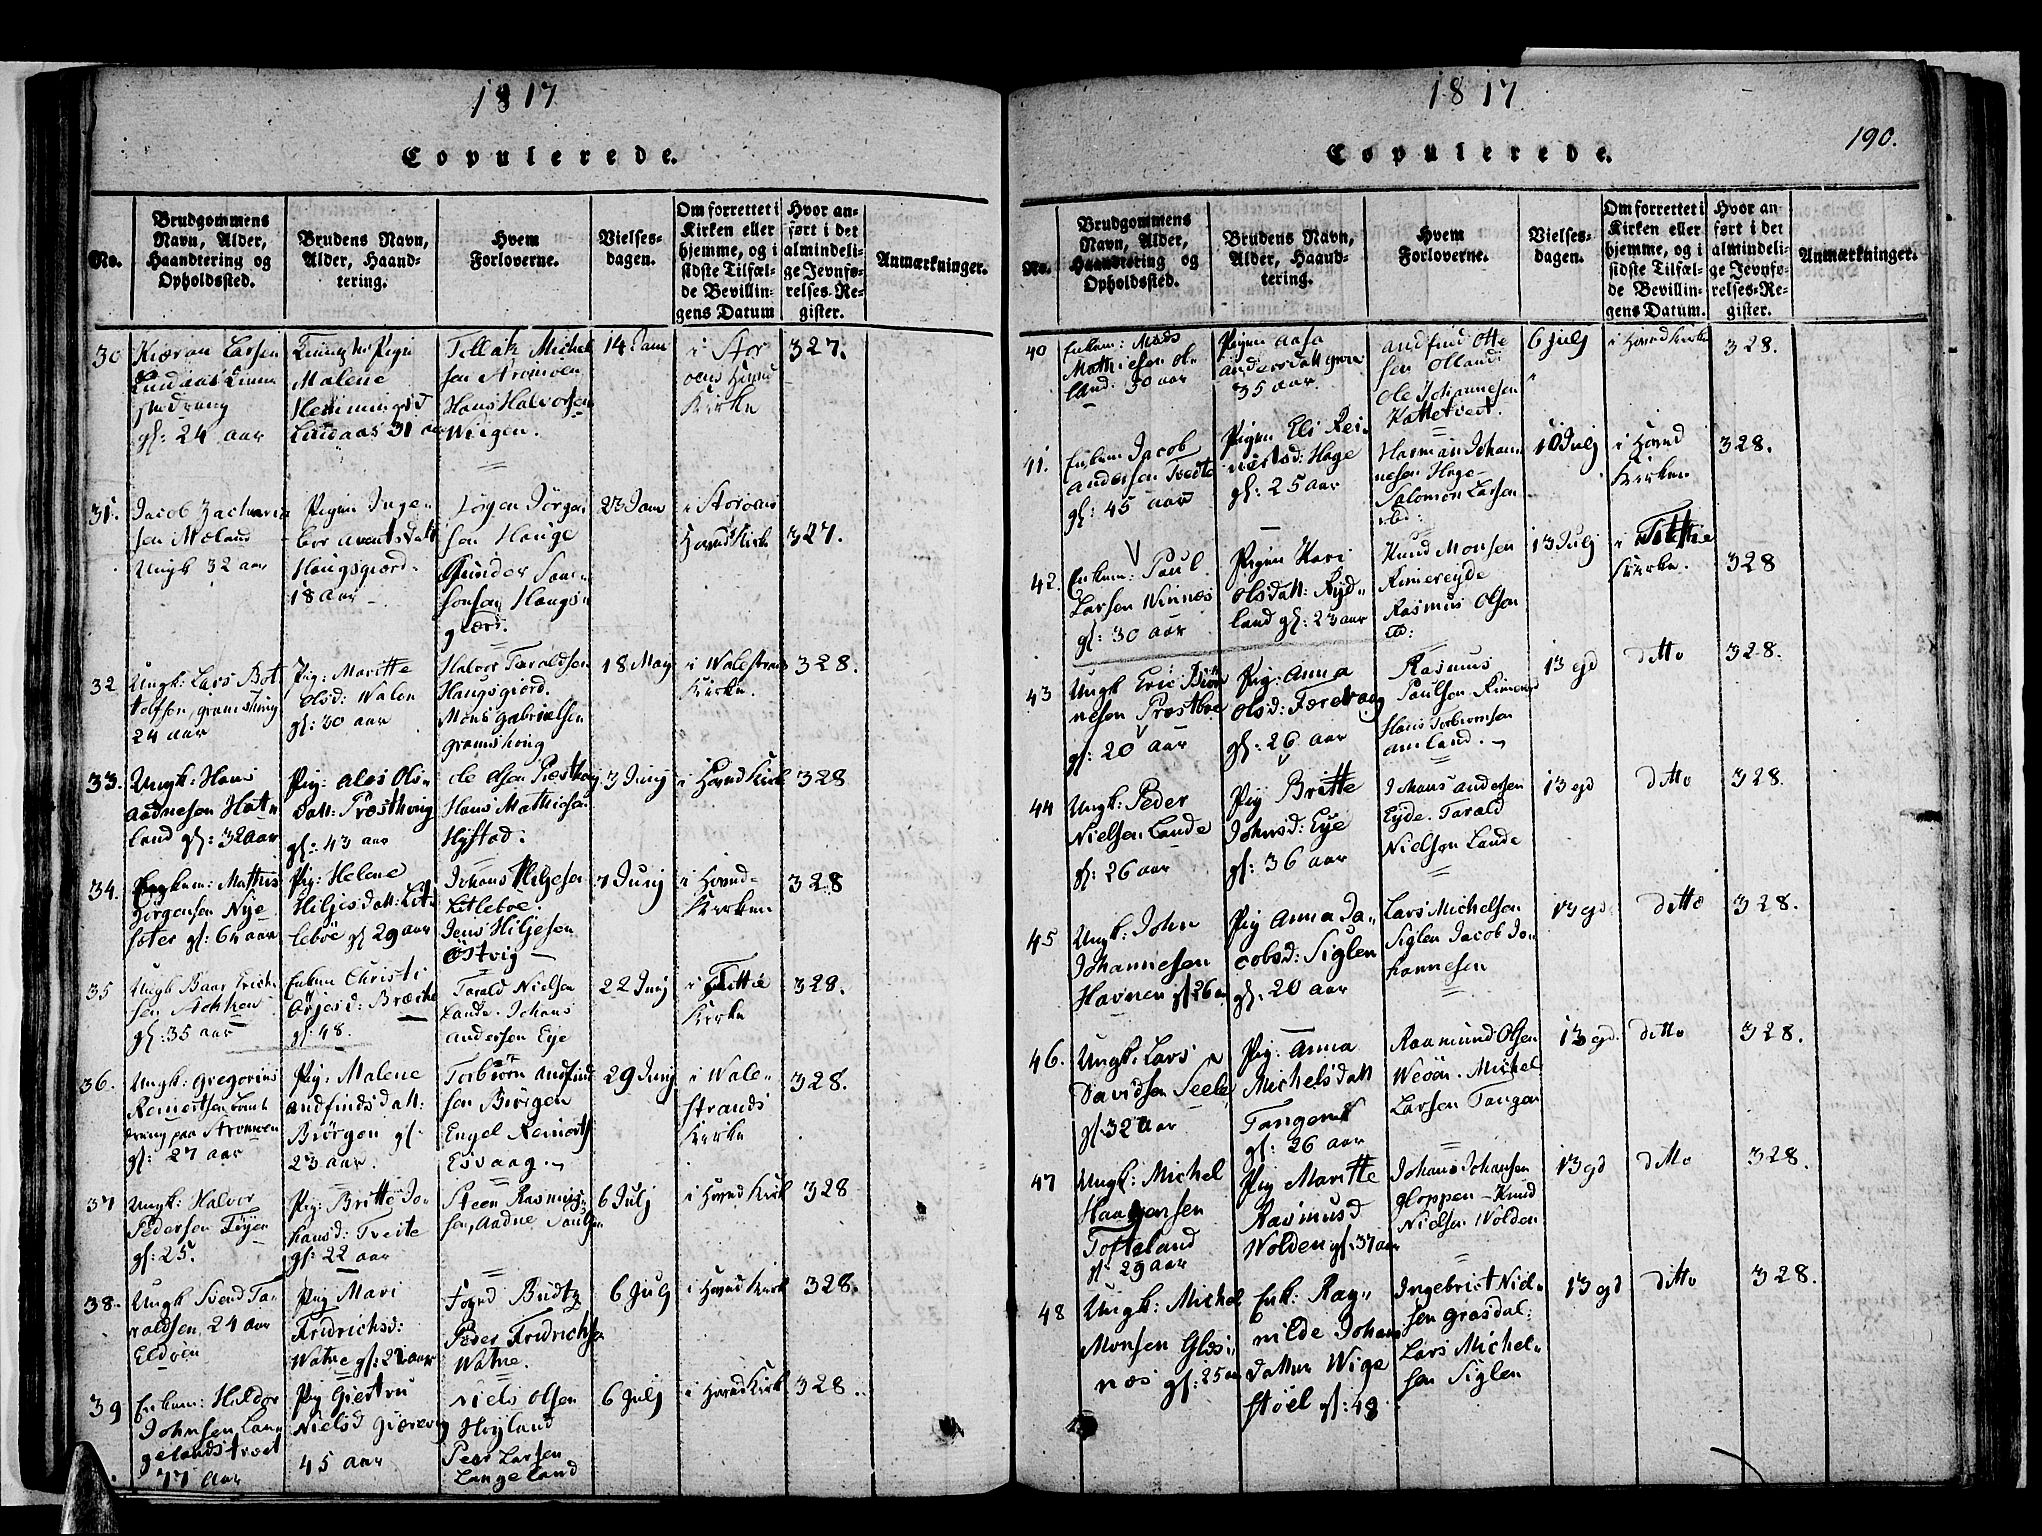 1817
Copulerede.
No.
Brudgommens
Navn, Alder,
Haandtering og
Opholdssted.
Brudens Navn,
Alder, Haand-
tering.
Hvem
Forloverne.
Vielses-
dagen.
Om forrettet i
Kirken eller
hjemme, og i
sidste Tilfæl-
de Bevillin-
gens Datum
Hvor an-
ført i det
almindeli-
ge Jevnfø-
relses-Re-
gister.
Anmærkninger.
30
Larsen
gl: 24 aar
Malene
Hemmingsd
Lindaas 31 aar
Tellak Michel
sen
Hans Halvorsen
Wiigen.
14 Jan
i Stor
oens Hoved
Kirke
327.
31.
Jacob Zacharia
sen Moland
Ungk 32 aar
Pigen Inge-
bor
Haugsgiord
18 aar
Jörgen Jörgen
sen Hauge
Gunder
Haugs
giord.
23 Jan
i Storoens
Hoved Kirk
327.
32
Ungk: Lars Bot
tolfsen
24 aar
Pig: Maritte
Olsd: Walen
gl: 30 aar
Halvor Taraldsen
Haugsgiord.
Mons Gabrielsen
18 May
i Walestrans
Kirke.
328.
33.
Ungk: Hans
Aadnesen Hat
land gl: 32 aar
Pig: Ols
Datt: Præsthoug
gl: 43 aar
Ole Olsen Præsthoug
Hans Mathiesen
Hystad.
3 Junj
i Hoved Kirk
328
34.
Enkem: Mathis
Jörgensen Nye
sæter gl: 64 aar
Pig: Helene
Hiljesdatt: Lit
leböe gl 29 aar
Johans Hiljesen
Litleboe.
Jens Hiljesen
Östvig
7 Junj
i Hoved-
Kirken
328
35
Ungk Baar Erich
sen
gl: 35 aar
Enken Christi
Börjesd: Bræke
gl: 48.
Tarald Nielsen
Lande. Johans
Andersen Eye
22 Junj
i Fittie
Kirke
328.
36.
Ungk: Gregorius
Reinertsen
gl: 27 aar
Pig: Malene
Andfindsdatt:
Biörgen gl:
23 aar.
Torbiörn Andfind
sen Biörgen
Engel Reinerts
Esvaag.
29 Junj
i Wale-
strands
Kirke
328.
37
Ungk: Halvor
Pedersen Töyen
gl: 25.
Pig: Britte Jo
hansd: Tveite
gl: 22 aar
Steen Rasmus
sen, Aadne Paulsen
6 Julj
i Hoved Kirk
328
38.
Ungk Svend Ta-
raldsen, 24 aar
Eldöen
Pig Mari
Fridrichsd:
Watne gl: 22 aar
Foged Budtz
Peder Fridrichsen
Watne.
6 Julj
i Hoved Kirk
328.
39
Enkem: Haldor
Johnsen Lan
gelandstræet
77 aar
Pig Giertru
Nielsd
45 aar
Niels Olsen
Höyland
Peer Larsen
Langeland
6 Julj
i Hoved Kirk
328.
1817
190.
Copulerede.
No.
Brudgommens
Navn, Alder,
Haandtering og
Opholdssted.
Brudens Navn,
Alder, Haand-
tering.
Hvem
Forloverne.
Vielses-
dagen.
Om forrettet i
Kirken eller
hjemme, og i
sidste Tilfæl-
de Bevillin-
gens Datum.
Hvor an-
ført i det
almindeli-
ge Jevnfø-
relses-Re-
gister.
Anmærkninger.
40
Enkem: Mads
Mathiesen Ol
land: 50 aar
Pigen Aasa
Andersdatt
35 aar.
Andfind Otte
sen Olland
Ole Johannesen
Kattetvet.
6 Julj
i Hoved Kirke
328.
41.
Enkem Jacob
Andersen Tvedte
gl: 45 aar
Pigen Eli Rei
nertsd: Hage
gl: 25 aar
Harman Johan
nesen Hage
Salomon Larsen
ibd:
10 Julj
i Hoved
Kirken
328.
42.
Enkem: Paul
Larsen Winnes
gl: 30 aar
Pigen Kari
Olsdatt: Röd
land gl: 23 aar
Knud Monsen
Rimereyde
Rasmus Olsen
13 Julj
i Fittie
Kirke.
328
43
Ungk Eric Biör
nesen Præstboe
gl: 20 aar
Pig: Anna
Olsd:
gl: 26 aar
Rasmus
Paulsen
Hans Torbiornsen
Amland.
13 ejd
ditto
328.
44
Ungk: Peder
Nielsen Lande
gl: 26 aar
Pig Britte
Johnsd: Eye
gl: 36 aar
Johans Andersen
Eyde. Tarald
Nielsen Lande
13 ejd
ditto
328.
45
Ungk: John
Johannesen
Havnen gl: 26 aar
Pig Anna Ja
cobsd: Siglen
gl: 20 aar
Lars Michelsen
Siglen Jacob Jo
hannesen
13 ejd.
ditto
328.
46.
Ungk: Lars
Davidsen Seele
gl: 32 aar
Pig: Anna
Michelsdatt
Tangen
gl: 26 aar
Raamund Olsen
Weöen. Michel
Larsen Tangen
13 ejd.
ditto
328.
47
Ungk: Michel
Haagensen
Tofteland
gl: 29 aar
Pig Maritte
Rasmusd
Wolden gl: 37 aar
Johans Johansen
Gloppen - Knud
Nielsen Wolden
13 ejd
ditto
328.
48
Ungk: Michel
Monsen Gløs
nes gl: 25 aar
Enk: Rag
nilde Johans
datter Wige
støel gl: 48
Ingebrict Niel
sen Grøsdal:
Lars Michel
sen Siglen
13 ejd
ditto
328.